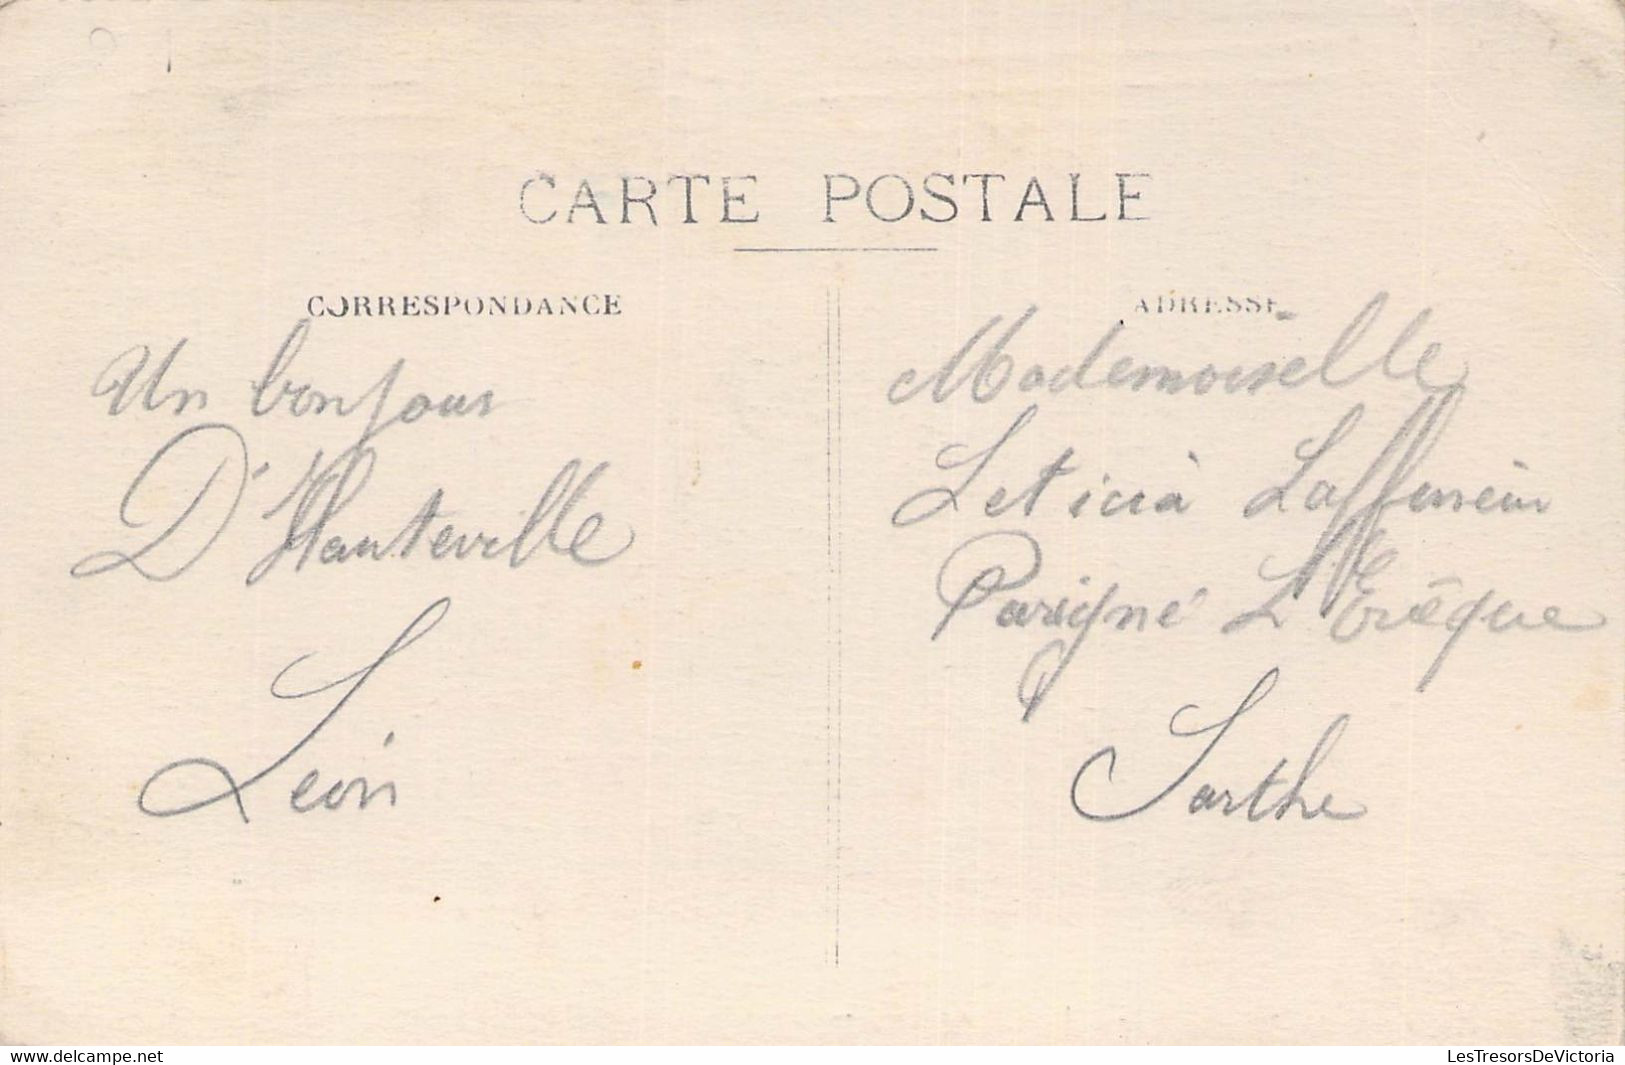 CARTE POSTALE
CORRESPONDANCE
Un bonjour
D'Hauteville
Léon
ADRESSE
Mademoiselle
Leticia
Parigné L'Evêque
Sarthe
www.delcampe.net
LesTresorsDeVictoria